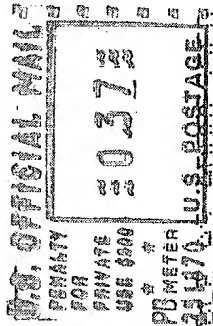 U.S. OFFICIAL MAIL
PENALTY
FOR
PRIVATE
USE $300
* *
PB METER
0372
U.S. POSTAGE